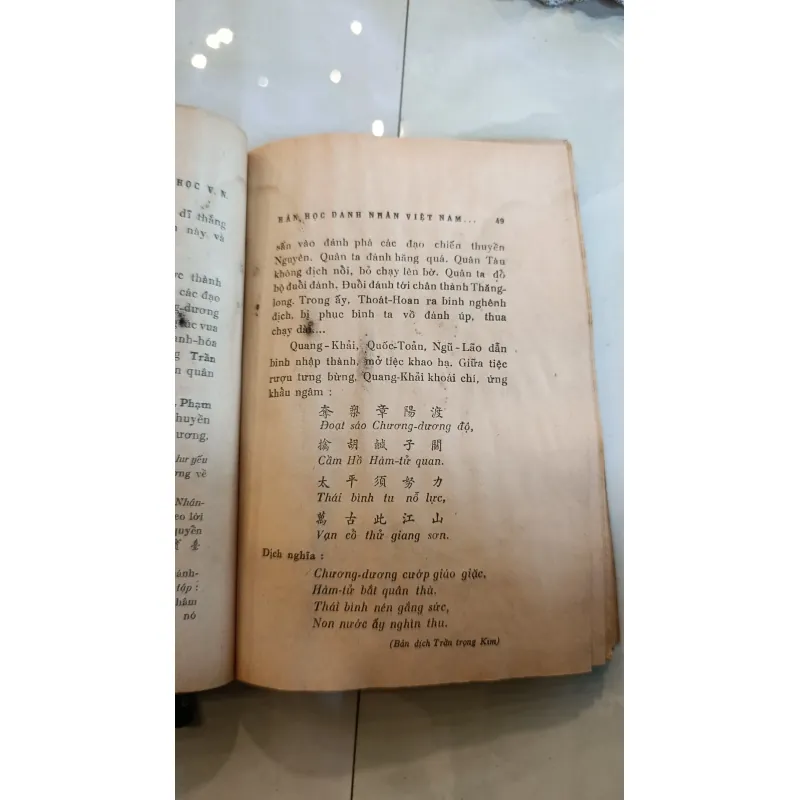 HỌC V. N.
dĩ thắng
này và
thành
các đạo
-dương
vua
anh-hóa
Trần
quân
Phạm
huyền
ương.
như yếu
ng về
Nhân-
eo lời
quyền
臺
ành-
táp :
hâm
nó
HÁN HỌC DANH NHÂN VIỆT NAM... 49
sấn vào đánh phá các đạo chiến thuyền
Nguyên. Quân ta đánh hăng quá. Quân Tàu
không địch nổi, bỏ chạy lên bờ. Quân ta đổ
bộ đuổi đánh. Đuổi đánh tới chân thành Thăng-
long. Trong ấy, Thoát-Hoan ra binh nghênh
địch, bị phục binh ta vồ đánh úp, thua
chạy dài...
Quang-Khải, Quốc-Toản, Ngũ-Lão dẫn
binh nhập thành, mở tiệc khao hạ. Giữa tiệc
rượu tưng bừng, Quang-Khải khoái chí, ứng
khẩu ngâm :
章 陽 渡
Đoạt sáo Chương-dương độ,
擒 胡 鹹 子 關
Cầm Hồ Hàm-tử quan.
太 平 須 努 力
Thái bình tu nỗ lực,
萬 古 此 江 山
Vạn cổ thử giang sơn.
Dịch nghĩa :
Chương-dương cướp giáo giặc,
Hàm-tử bắt quân thù.
Thái bình nên gắng sức,
Non nước ấy nghìn thu.
(Bản dịch Trần trọng Kim)